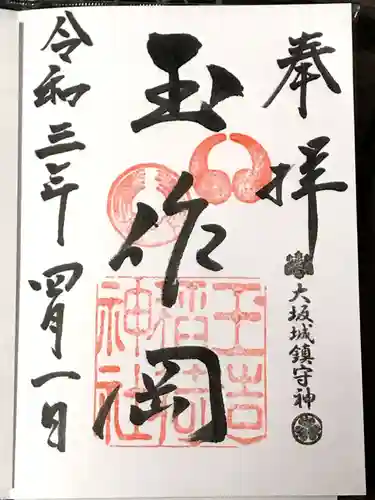 奉拝
大坂城鎮守神
玉作岡
神社
令和三年四月一日